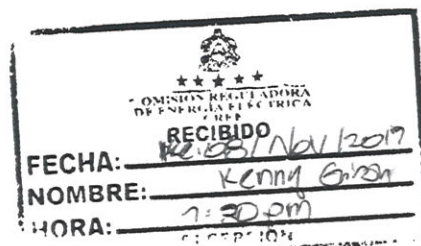 COMISIÓN REGULADORA
DE ENERGÍA ELÉCTRICA
CREE
RECIBIDO
FECHA: 08/Nov/2019
NOMBRE: Kenny
HORA: :30 pm
RECEPCIÓN